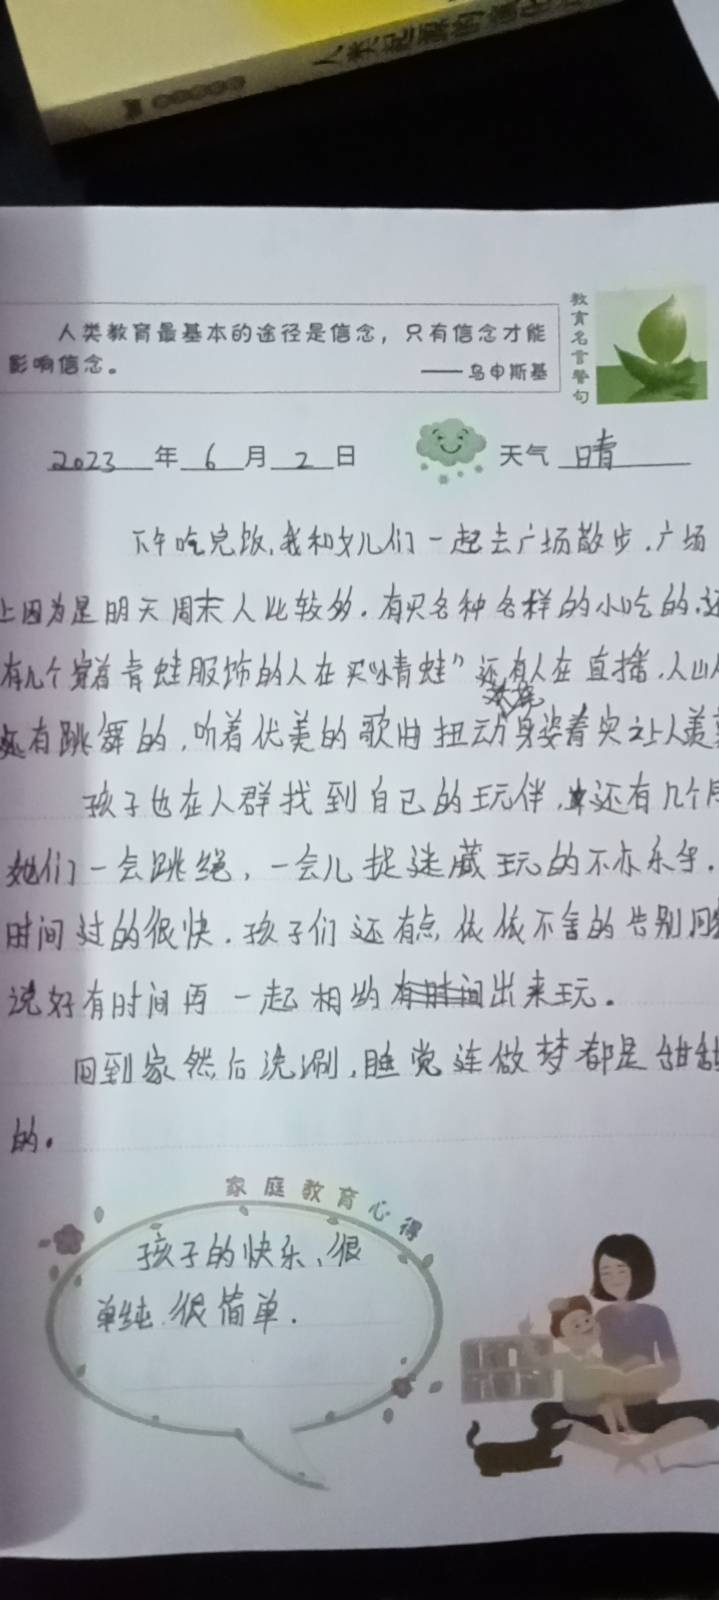 人类起源的演化过
人类教育最基本的途径是信念，只有信念才能
影响信念。
——乌申斯基
教育名言警句
2023年6月2日
天气 晴
下午吃完饭,我和女儿们一起去广场散步.广场
上因为是明天周末人比较多.有买各种各样的小吃的.还
有几个穿着青蛙服饰的人在买“小青蛙”还有人在直播.人山人
还有跳舞的,听着优美的歌曲扭动身姿着实让人羡
孩子也在人群找到自己的玩伴,还有几个
她们一会跳绳,一会儿捉迷藏玩的不亦乐乎.
时间过的很快.孩子们还有点依依不舍的告别
说好有时间再一起相约有时间出来玩。
回到家然后洗涮,睡觉连做梦都是甜甜
的。
家庭教育心得
孩子的快乐、很
单纯.很简单.